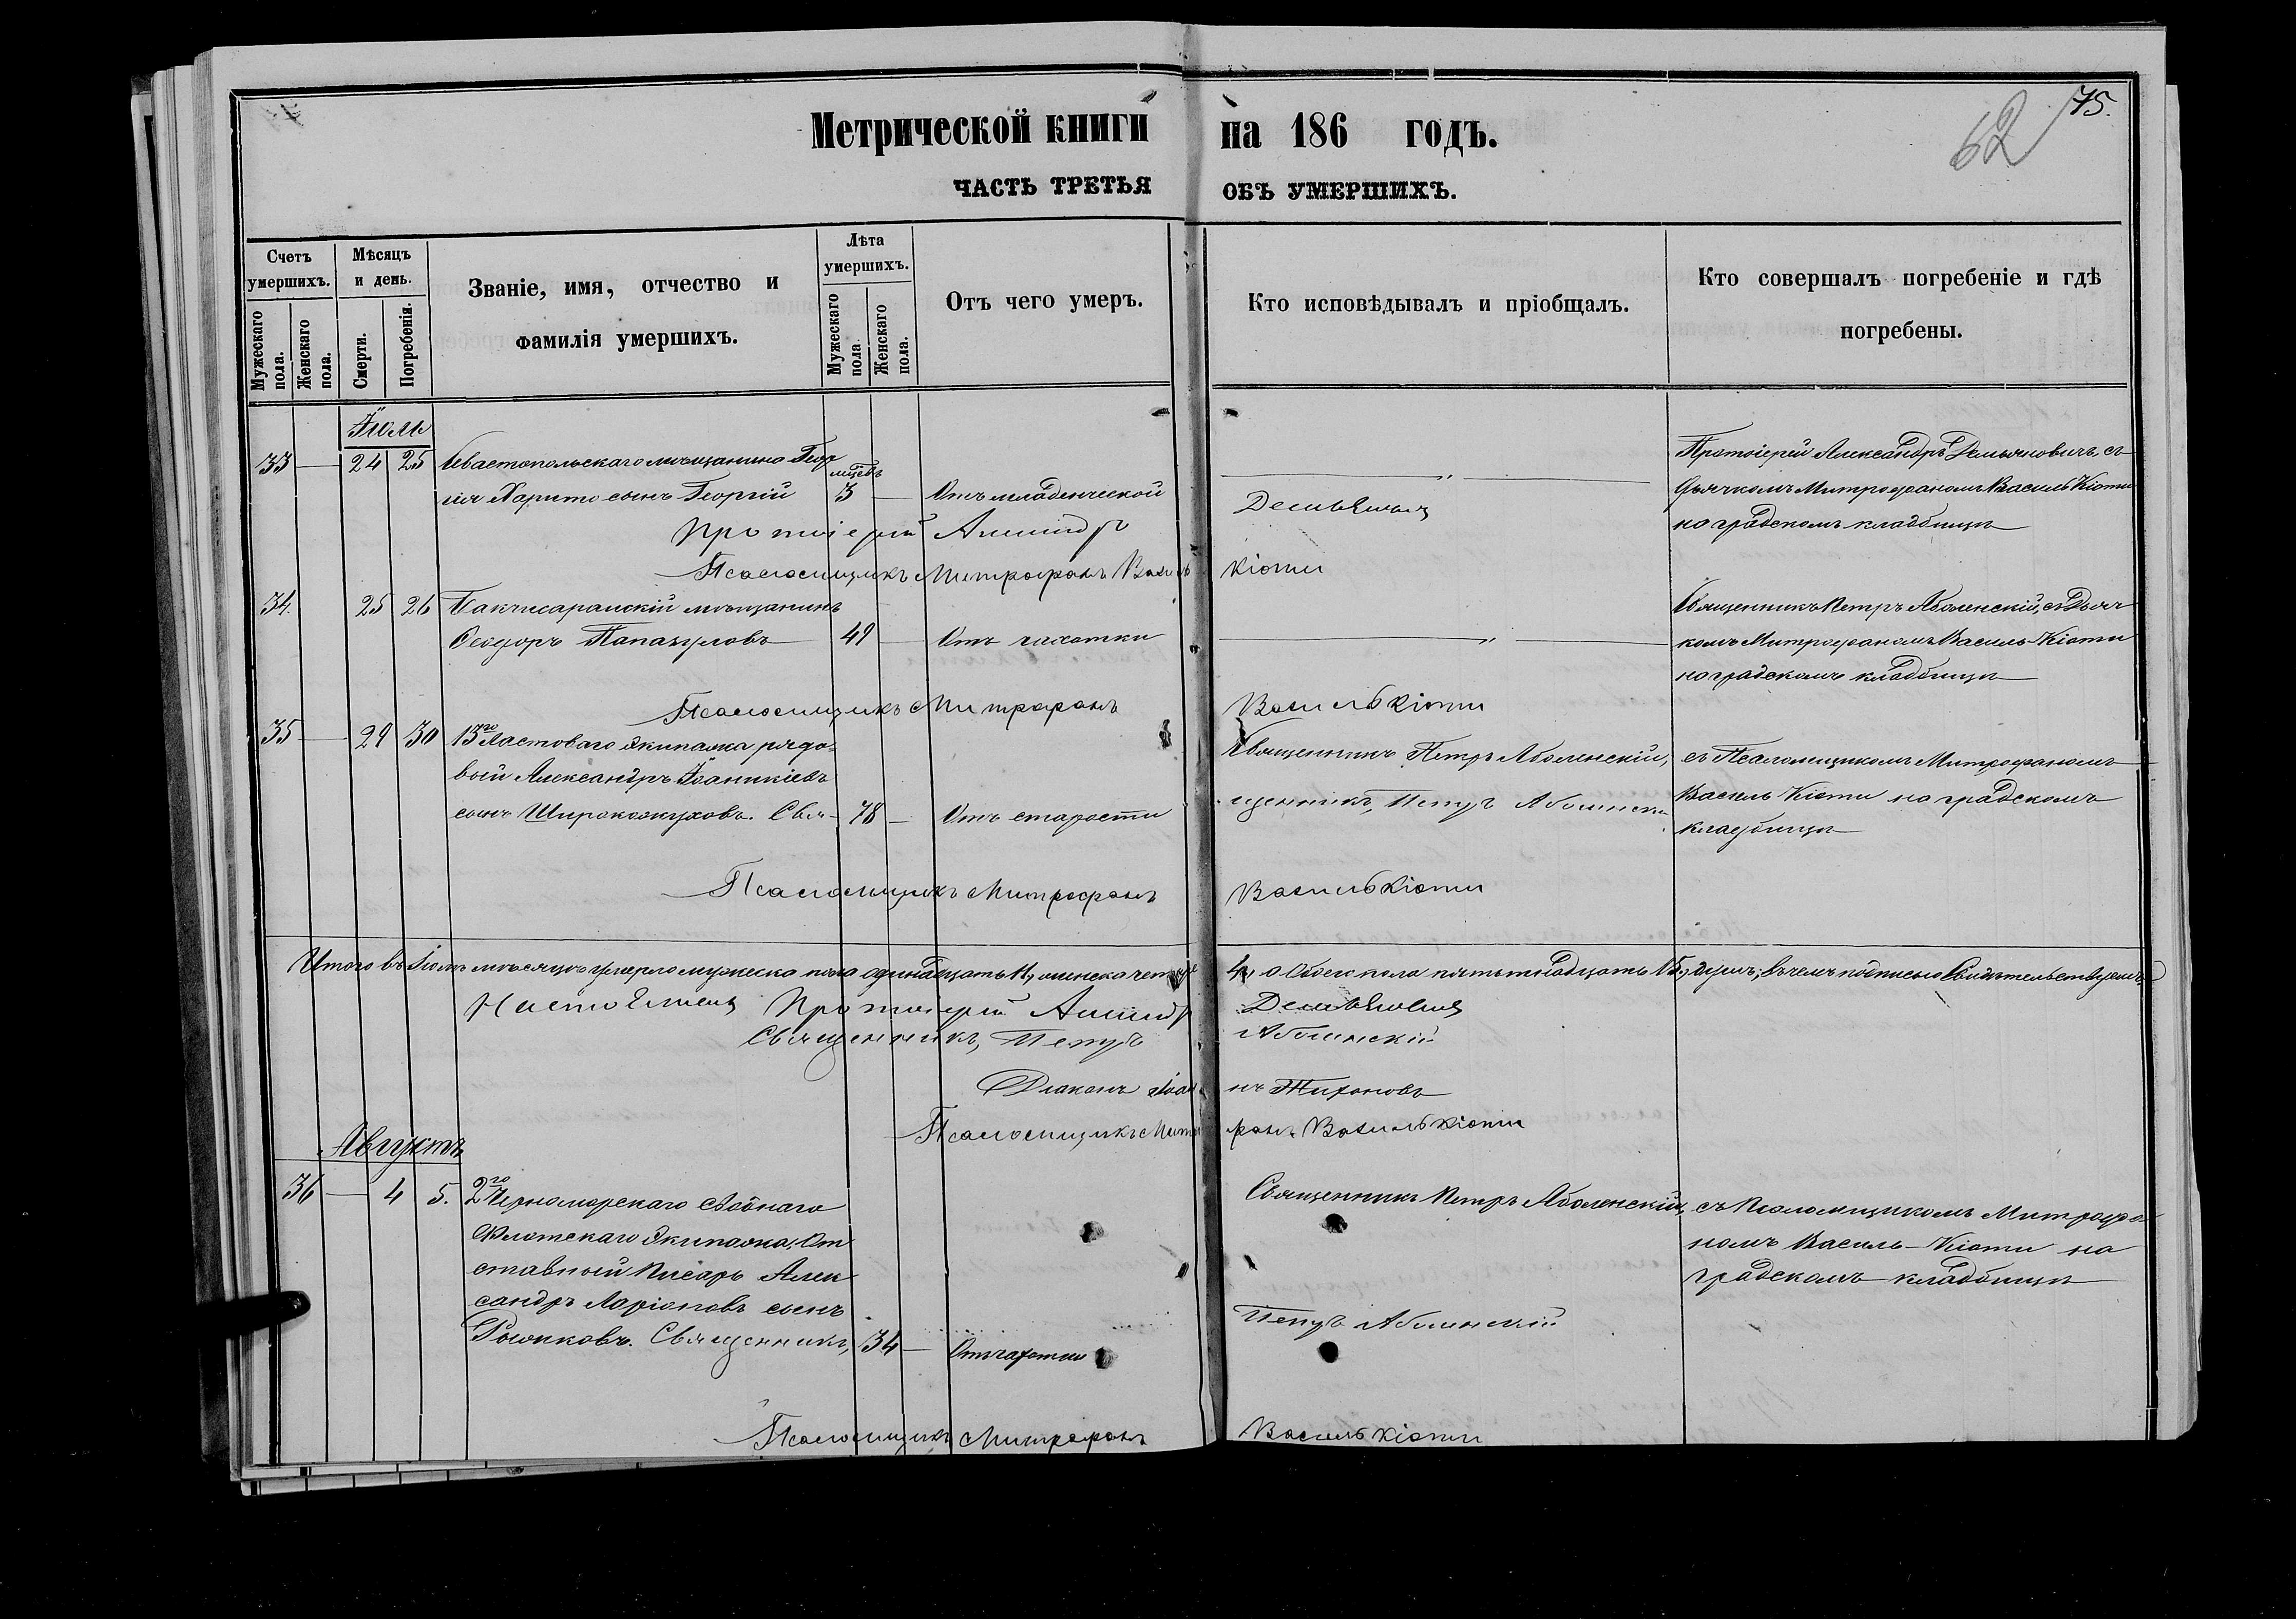 Метрической книги на 186 годъ.
75.
62
ЧАСТЬ ТРЕТЬЯ ОБЪ УМЕРШИХЪ.
Счетъ умершихъ.
Мужескаго пола.
Женскаго пола.
Мѣсяцъ и день.
Смерти.
Погребенія.
Званіе, имя, отчество и
фамилія умершихъ.
Лѣта умершихъ.
Мужескаго пола
Женскаго пола.
Отъ чего умеръ.
Кто исповѣдывалъ и пріобщалъ.
Кто совершалъ погребеніе и гдѣ
погребены.
Іюль
33 — 24 25 Севастопольскаго мѣщанина Геор
гія Харито сынъ Георгій
мцевъ
3 — Отъ младенческой
Протоіерей Александръ Демьяновичъ, съ
дьячкомъ Митрофаномъ Василь Кіоти
на градскомъ кладбищѣ
Протоіерей Александръ Демьяновичъ
Псаломщикъ Митрофанъ Василькіоти
34. 25 26 Бакчисарайскій мѣщанинъ
Ѳеодоръ Папазуловъ 49 — Отъ чахотки
Священникъ Петръ Аболенскій, съ Дьяч
комъ Митрофаномъ Василь-Кіоти
на градскомъ кладбищѣ
Псаломщикъ Митрофанъ Василькіоти
35 — 29 30 13го Ластоваго Экипажа рядо-
вой Александръ Іоанникіевъ
сынъ Широкожуховъ. Свя- 78 — Отъ старости
Священникъ Петръ Аболенскій,
щенникъ, Петръ Аболенскій
съ Псаломщикомъ Митрофаномъ
Василь Кіоти на градскомъ
кладбищѣ
Псаломщикъ Митрофанъ Василькіоти
Итого въ Іюлѣ мѣсяцѣ умерло мужеска пола одинадцать 11, женска четыре 4, а Обоего пола пятьтнадцать 15, душъ; въ чемъ подписью Свидѣтельствуемъ
Настоятель Протоіерей Александръ Демьяновичъ
Священникъ, Петръ Аболенскій
Діаконъ Іоаннъ Тихоновъ
Псаломщикъ Митрофанъ Василькіоти
Августъ
36 — 4 5. 2го Черноморскаго своднаго
Флотскаго Экипажа, От
ставной Писарь Алек
сандръ Ларіоновъ сынъ
Священникъ, 34 — Отъ чахотки
Священникъ Петръ Аболенскій,
Петръ Аболенскій
съ Псаломщикомъ Митрофа
номъ Василь-Кіоти на
градскомъ кладбищѣ
Псаломщикъ Митрофанъ Василькіоти